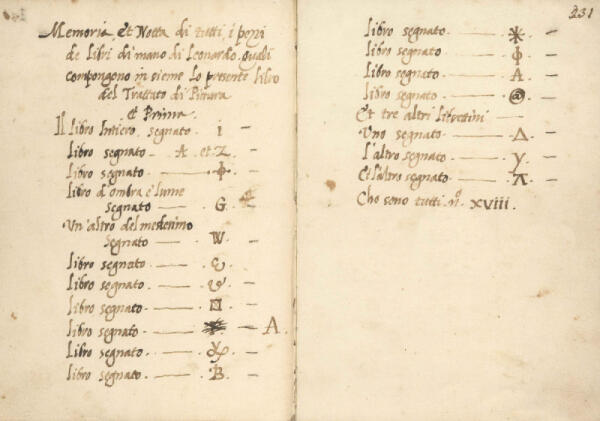 Memoria, et Notta di tutti i pezzi
de libri di mano di Leonardo, quali
compongono in sieme lo presente libro
del Trattato di Pittura
et Prima.
Il libro Intiero, segnato · I · —
Libro segnato — A et Z · —
Libro segnato · — · Φ · —
Libro d'ombra e lume
segnato — · G · —
Un'altro del medesimo
segnato — · W · —
Libro segnato · — · —
Libro segnato · — · —
Libro segnato · — · —
Libro segnato · — · — A
Libro segnato · — · —
Libro segnato · — · B · —
231
Libro segnato — · —
Libro segnato — · ϕ · —
Libro segnato — · A · —
Libro segnato — · @ · —
Et tre altri librettini —
Uno segnato — · Δ · —
L'altro segnato — · y · —
Et l'altro segnato — · Λ · —
Che sono tutti nº XVIII.